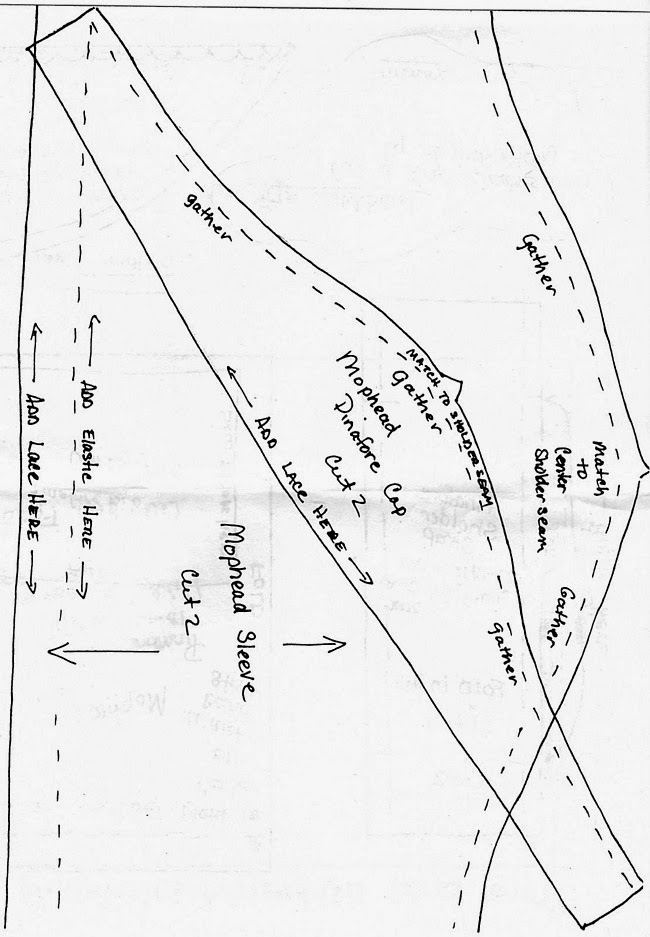 Gather
Match
to
Center
Sholder seam
Gather
gather
MATCH TO SHOLDER SEAM
Gather
gather
Mophead
Pinafore Cap
Cut 2
ADD LACE HERE
Mophead Sleeve
Cut 2
ADD Elastic HERE
ADD LACE HERE